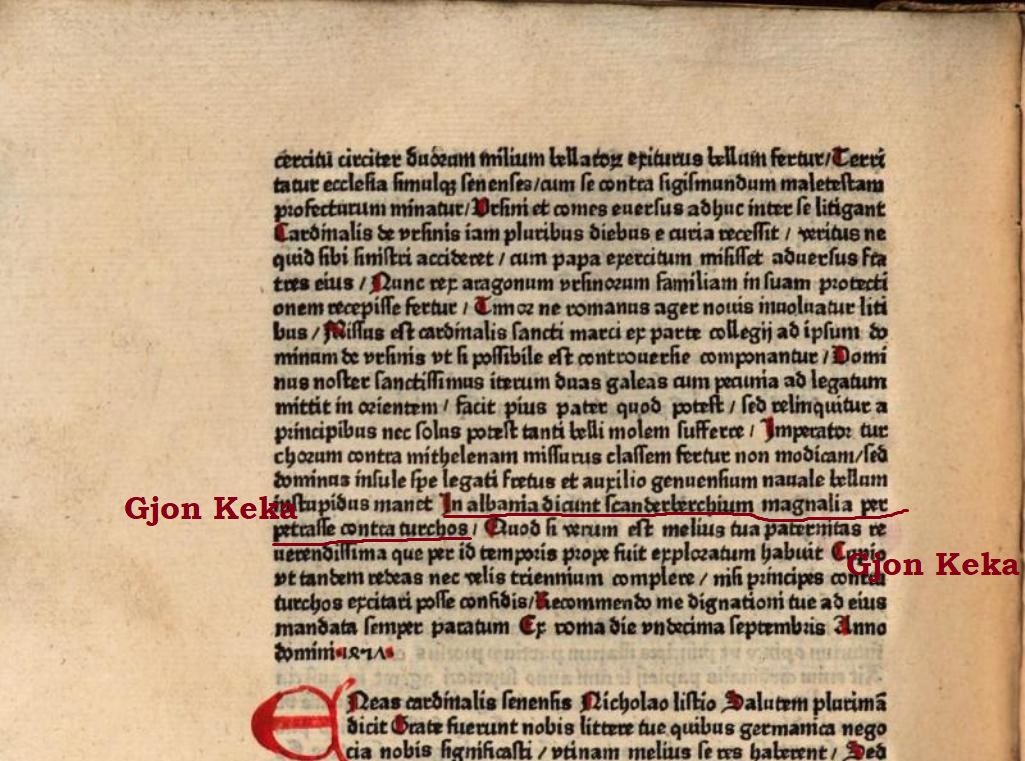 cercitū circiter duorum milium bellatoꝝ exiturus bellum fertur/Terri
tatur ecclesia simulqꝫ senenses/cum se contra sigismundum maletestam
profecturum minatur/Ursini et comes euersus adhuc inter se litigant
Cardinalis de vrsinis iam pluribus diebus e curia recessit / veritus ne
quid sibi sinistri accideret / cum papa exercitum misisset aduersus fra
tres eius / Nunc rex aragonum vrsinorum familiam in suam protecti
onem recepisse fertur / Timor ne romanus ager nouis inuoluatur liti
bus / Missus est cardinalis sancti marci ex parte collegij ad ipsum do
minum de vrsinis vt si possibile est controuersie componantur / Domi
nus noster sanctissimus iterum duas galeas cum pecunia ad legatum
mittit in orientem / facit pius pater quod potest / sed relinquitur a
principibus nec solus potest tanti belli molem sufferre / Imperator tur
chorum contra mithelenam missurus classem fertur non modicam/sed
dominus insule spe legati fretus et auxilio genuensium nauale bellum
instupidus manet In albania dicunt scanderberchium magnalia per
Gjon Keka
petrasse contra turchos / Quod si verum est melius tua paternitas re
uerendissima que per id temporis prope fuit exploratum habuit Cupio
Gjon Keka
vt tandem redeas nec velis triennium complere / nisi principes contra
turchos excitari posse confidis/Recommendo me dignationi tue ad eius
mandata semper paratum Ex roma die vndecima septembris Anno
domini
ENeas cardinalis senensis Nicholao listio Salutem plurimā
dicit Grate fuerunt nobis littere tue quibus germanica nego
cia nobis significasti / vtinam melius se res haberent / Sed